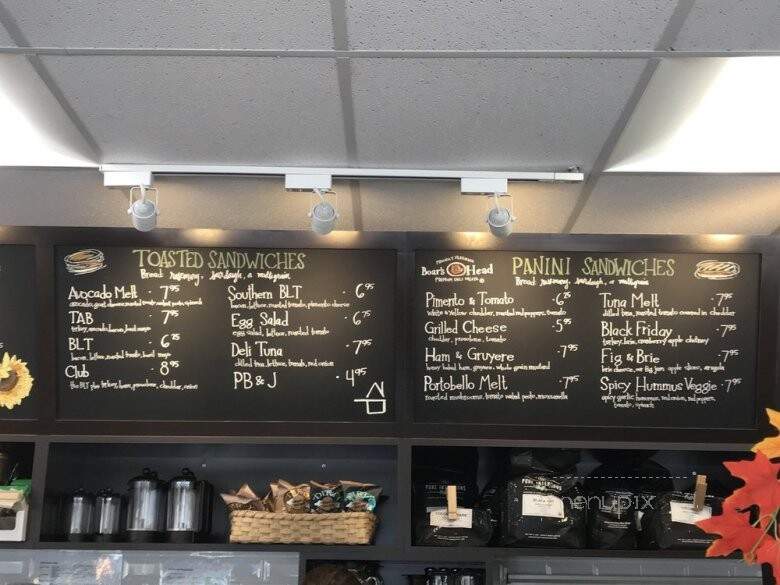 TOASTED SANDWICHES
Bread rosemary, sourdough, or multigrain
Avocado Melt · 7.95
avocado, goat cheese, roasted tomato
TAB · 7.95
turkey, avocado, bacon, basil mayo
BLT · 6.25
bacon, lettuce, roasted tomato, basil mayo
Club · 8.95
the BLT plus turkey, ham, provolone, cheddar, onion
Southern BLT · 6.95
bacon, lettuce, roasted tomato, pimento cheese
Egg Salad · 6.95
egg salad, lettuce, roasted tomato
Deli Tuna · 7.95
dilled tuna, lettuce, tomato, red onion
PB & J · 4.95
Boar's Head
PREMIUM DELI MEATS
PANINI SANDWICHES
Bread rosemary, sourdough, or multigrain
Pimento & Tomato · 6.75
white & yellow cheddar, roasted red peppers, tomato
Grilled Cheese · 5.95
cheddar, provolone, tomato
Ham & Gruyere · 7.95
honey baked ham, gruyere, whole grain mustard
Portobello Melt · 7.95
roasted mushrooms, tomato pesto, mozzarella
Tuna Melt · 7.95
dilled tuna, roasted tomato covered in cheddar
Black Friday · 7.95
turkey, brie, cranberry apple chutney
Fig & Brie · 7.95
brie cheese, fig jam, apple slices, arugula
Spicy Hummus Veggie · 7.95
spicy garlic hummus, red onion, red peppers,
tomato, spinach
menupix